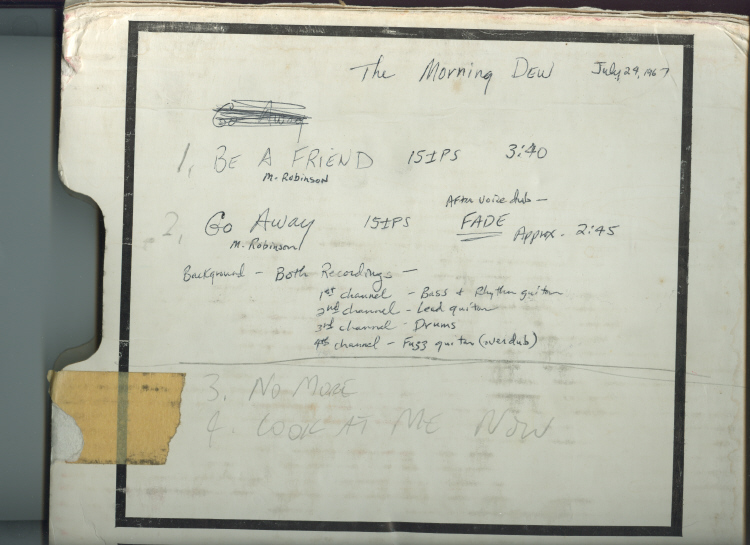 The Morning Dew July 29, 1967
Go Away
1, BE A FRIEND 15IPS 3:40
M. Robinson
2, Go Away 15IPS After voice dub — FADE Approx. 2:45
M. Robinson
Background — Both Recordings —
1st channel - Bass + Rhythm guitar
2nd channel - Lead guitar
3rd channel - Drums
4th channel - Fuzz guitar (overdub)
3. NO MORE
4. LOOK AT ME NOW